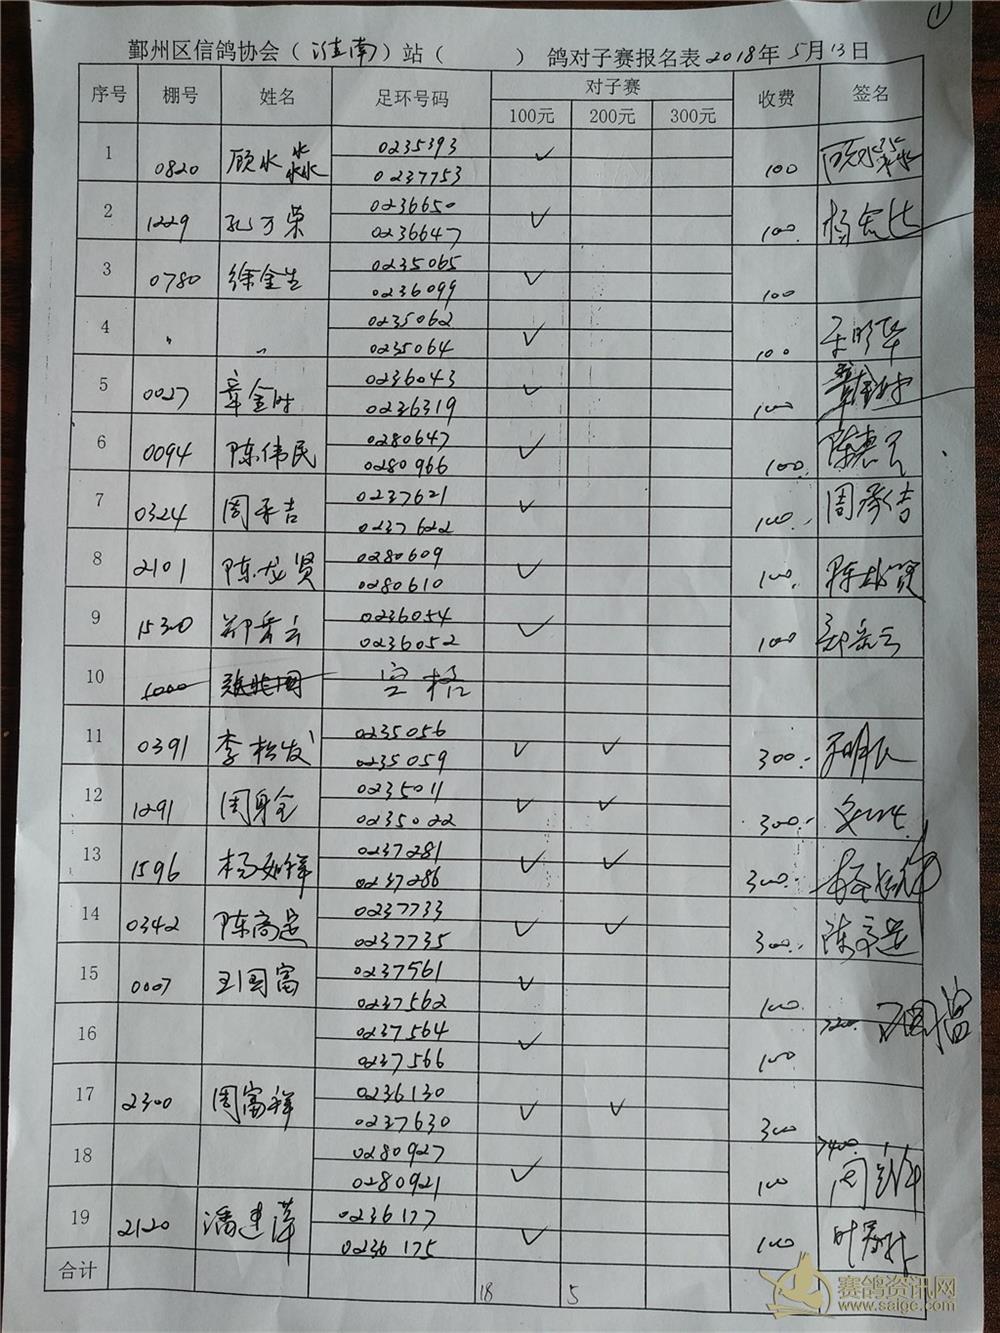 ①
鄞州区信鸽协会（洼南）站（ ）鸽对子赛报名表 2018年5月13日
序号 棚号 姓名 足环号码 对子赛 收费 签名
100元 200元 300元
1 0820 顾水淼 0235393 ✓ 100
0237753
2 1229 孔万荣 0236650 ✓ 100
0236647
3 0780 徐金生 0235065 ✓ 100
0236099
4 〃 〃 0235062 ✓ 100
0235064
5 0027 章金时 0236043 ✓ 100 章金时
0236319
6 0094 陈伟民 0280647 ✓ 100
0280966
7 0324 周承吉 0237621 ✓ 100 周承吉
0237622
8 2101 陈龙贤 0280609 ✓ 100 陈龙贤
0280610
9 1530 郑岳云 0236054 ✓ 100 郑岳云
0236052
10 1000 空格
11 0391 李松发 0235056 ✓ ✓ 300
0235059
12 1291 周身全 0235011 ✓ ✓ 300
0235022
13 1596 杨如祥 0237281 ✓ ✓ 300
0237286
14 0342 陈高邑 0237733 ✓ ✓ 300
0237735
15 0007 王国富 0237561 ✓ 100
0237562
16 0237564 ✓ 100 200 王国富
0237566
17 2300 周富祥 0236130 ✓ ✓ 300
0237630
18 0280927 ✓ 100 400
0280921
19 2120 潘建萍 0236177 ✓ 100
0236175
合计 18 5
赛鸽资讯网
www.saige.com